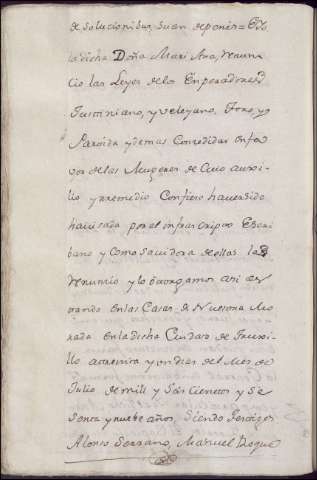 de solucionibus, Suan deponis = Y Yo
la dicha Doña Mari Ana, Renun
cio las Leyes de los Emperadores
Justiniano, y veleyano, Toro, y
Partida y demas Concedidas enfa
vor de las Mugeres de Cuio auxi
lio y rremedio Confieso haver sido
havisada por el infraescripto Escri
bano y Como Savidora de ellas las
Renuncio y lo otorgamos asi es
tando en las Casas de Nuestra Mo
rada en la dicha Ciudad de Truxi
llo a treinta y un dias del Mes de
Julio de mill y Seis cientos y Se
senta y nuebe años, Siendo Testigos
Alonso Serrano, Manuel Roque